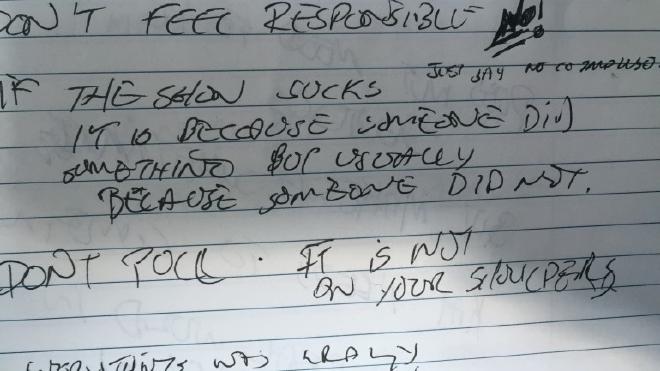 DON'T FEEL RESPONSIBLE NO!
JUST SAY NO
IF THE SHOW SUCKS
IT IS BECAUSE SOMEONE DID
SOMETHING BUT USUALLY
BECAUSE SOMEONE DID NOT.
DONT . IT IS NOT
ON YOUR SHOULDERS
WAS